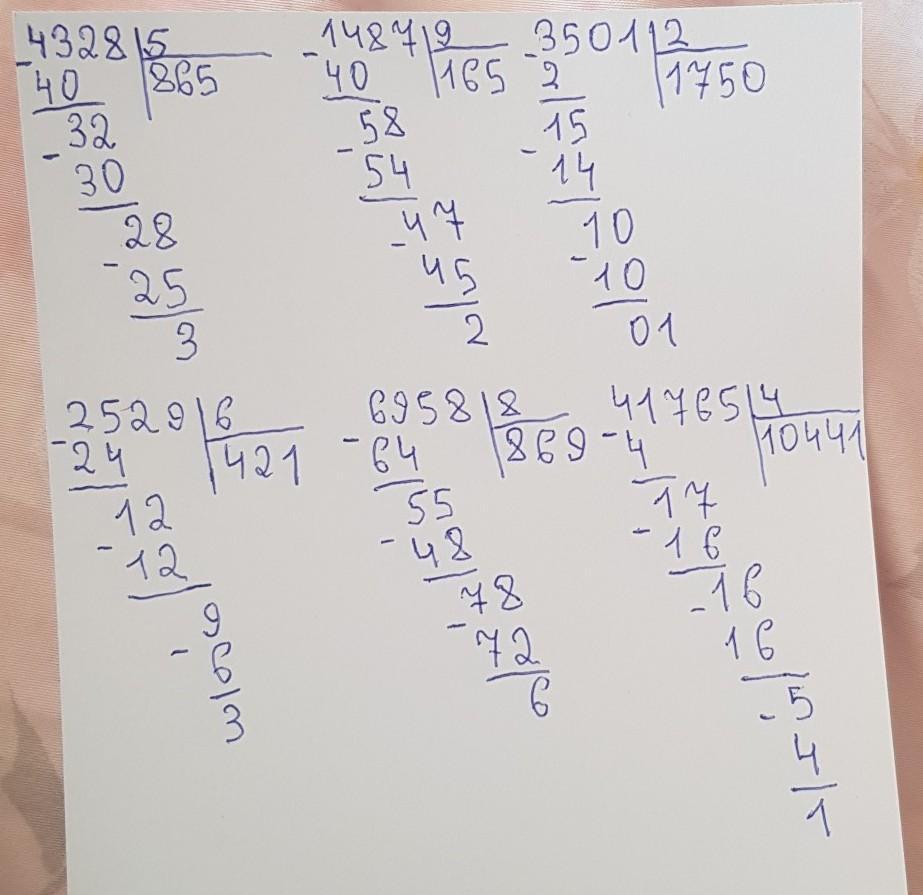 -4328|5
40 |865
-32
30
-28
25
3
-1487|9
40 |165
-58
54
-47
45
2
-3501|2
2 |1750
-15
14
-10
10
01
-2529|6
24 |421
-12
12
-9
6
3
-6958|8
64 |869
-55
48
-78
72
6
-41765|4
4 |10441
-17
16
-16
16
-5
4
1